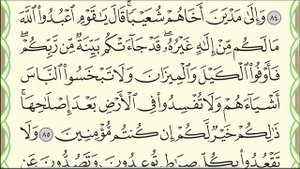 ٨٤ وَإِلَىٰ مَدْيَنَ أَخَاهُمْ شُعَيْبًا ۗ قَالَ يَٰقَوْمِ ٱعْبُدُوا۟ ٱللَّهَ
مَا لَكُم مِّنْ إِلَٰهٍ غَيْرُهُۥ ۖ قَدْ جَآءَتْكُم بَيِّنَةٌ مِّن رَّبِّكُمْ ۖ
فَأَوْفُوا۟ ٱلْكَيْلَ وَٱلْمِيزَانَ وَلَا تَبْخَسُوا۟ ٱلنَّاسَ
أَشْيَآءَهُمْ وَلَا تُفْسِدُوا۟ فِى ٱلْأَرْضِ بَعْدَ إِصْلَٰحِهَا ۚ
ذَٰلِكُمْ خَيْرٌ لَّكُمْ إِن كُنتُم مُّؤْمِنِينَ ٨٥ وَلَا
تَقْعُدُوا۟ بِكُلِّ صِرَٰطٍ تُوعِدُونَ وَتَصُدُّونَ عَن